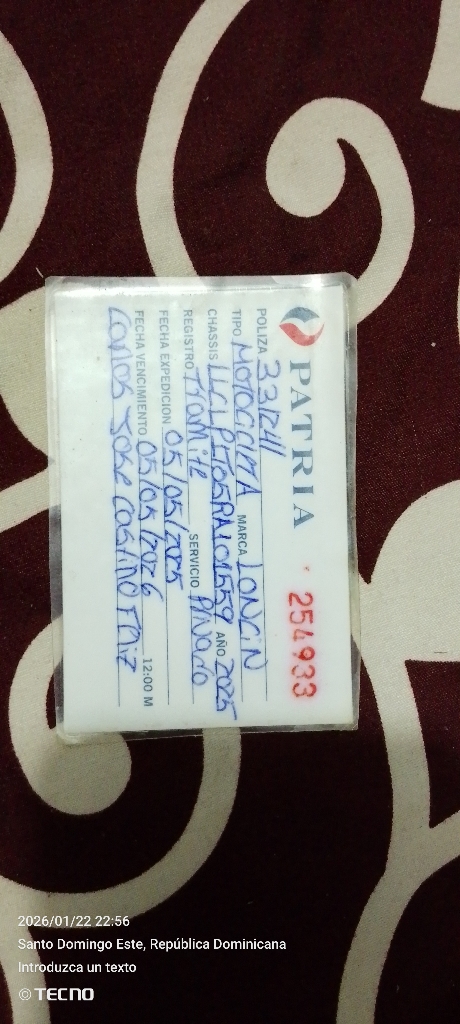 PATRIA
254933
POLIZA 331241
TIPO MOTOCICLETA MARCA LONCIN
CHASSIS AÑO 2025
REGISTRO Tramite SERVICIO Privado
FECHA EXPEDICION 05/05/2025
FECHA VENCIMIENTO 05/05/2026 12:00 M
Carlos Jose
2026/01/22 22:56
Santo Domingo Este, República Dominicana
Introduzca un texto
© TECNO